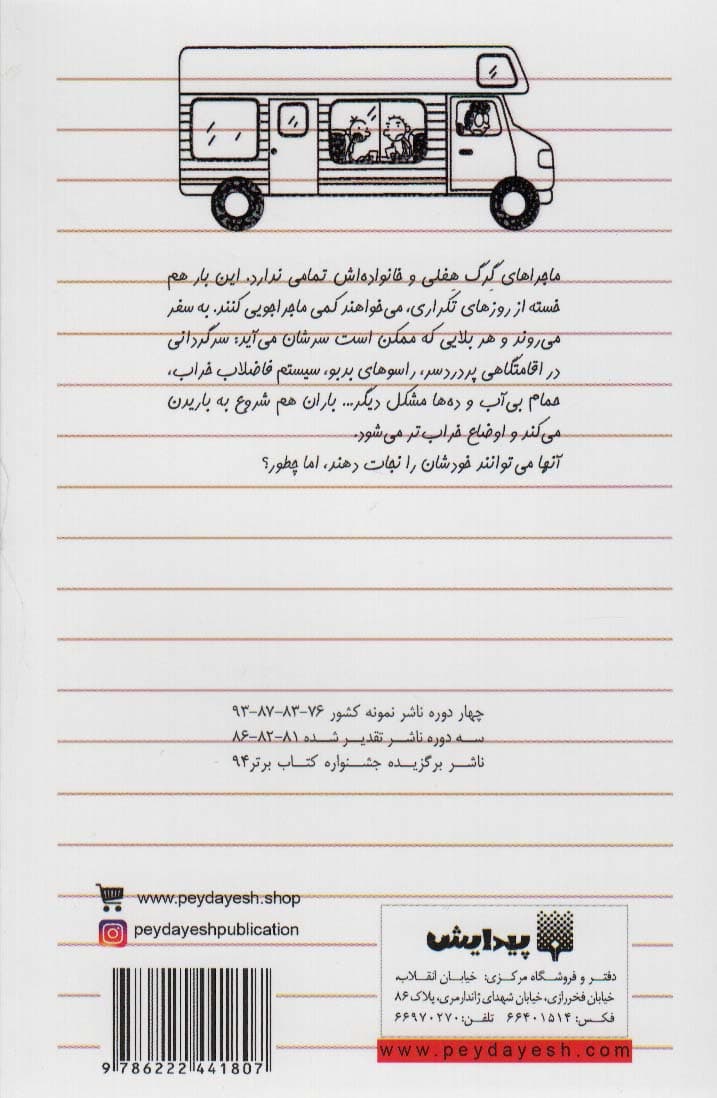 ماجراهای گِرگ هِفلی و خانواده‌اش تمامی ندارد. این بار هم
خسته از روزهای تکراری، می‌خواهند کمی ماجراجویی کنند. به سفر
می‌روند و هر بلایی که ممکن است سرشان می‌آید: سرگردانی
در اقامتگاهی پردردسر، راسوهای بدبو، سیستم فاضلاب خراب،
حمام بی‌آب و ده‌ها مشکل دیگر... باران هم شروع به باریدن
می‌کند و اوضاع خراب‌تر می‌شود.
آنها می‌توانند خودشان را نجات دهند، اما چطور؟
چهار دوره ناشر نمونه کشور ۷۶-۸۳-۸۷-۹۳
سه دوره ناشر تقدیر شده ۸۱-۸۲-۸۶
ناشر برگزیده جشنواره کتاب برتر ۹۴
www.peydayesh.shop
peydayeshpublication
پیدایش
دفتر و فروشگاه مرکزی: خیابان انقلاب،
خیابان فخررازی، خیابان شهدای ژاندارمری، پلاک ۸۶
فکس: ۶۶۴۰۱۵۱۴ تلفن: ۶۶۹۷۰۲۷۰
www.peydayesh.com
9 786222 441807